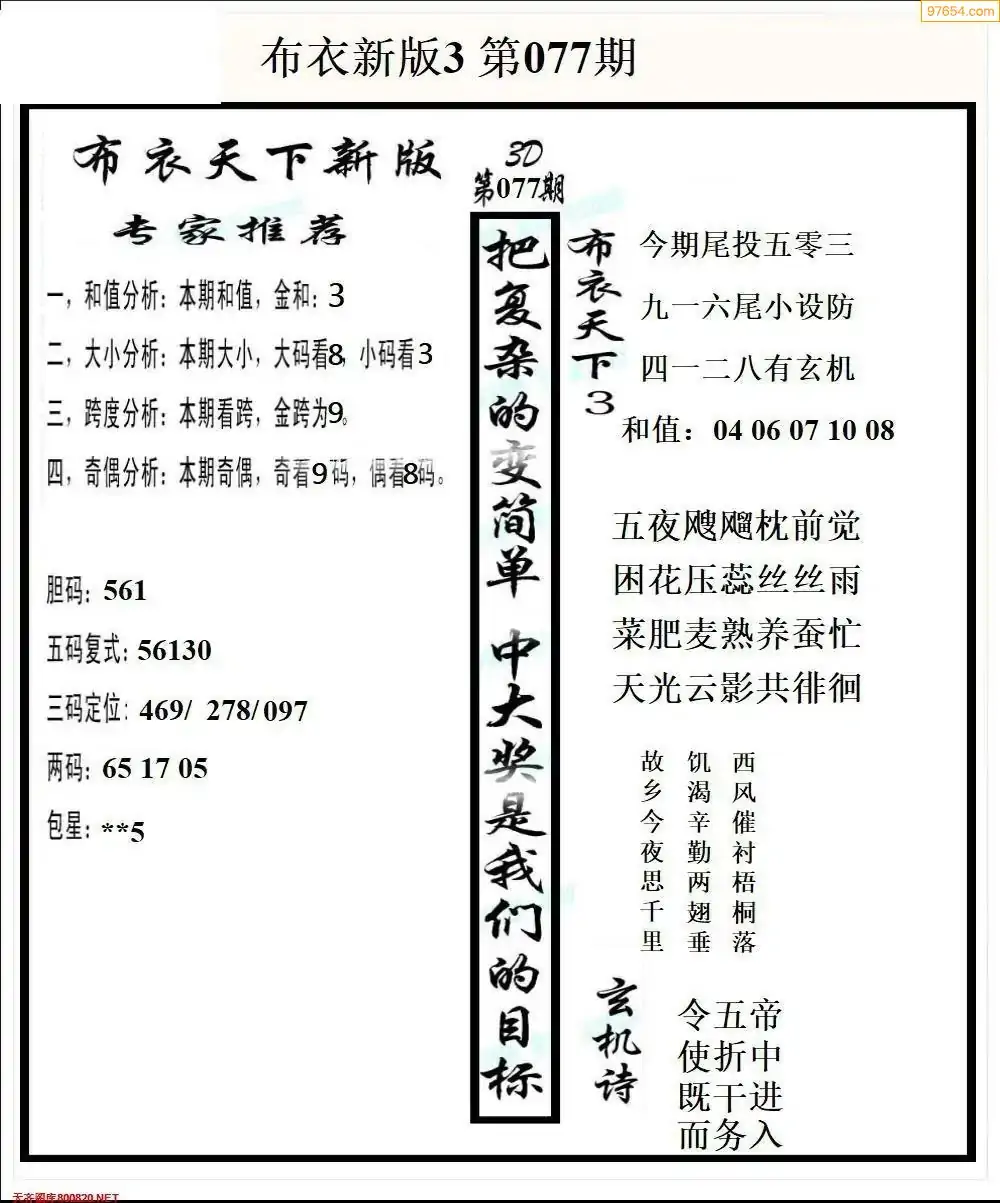 97654.com
布衣新版3 第077期
布衣天下新版
专家推荐
一，和值分析：本期和值，金和：3
二，大小分析：本期大小，大码看8，小码看3
三，跨度分析：本期看跨，金跨为9。
四，奇偶分析：本期奇偶，奇看9码，偶看8码。
胆码：561
五码复式：56130
三码定位：469/ 278/097
两码：65 17 05
包星：**5
3D
第077期
把复杂的变简单 中大奖是我们的目标
布衣天下3
今期尾投五零三
九一六尾小设防
四一二八有玄机
和值：04 06 07 10 08
五夜飕飗枕前觉
困花压蕊丝丝雨
菜肥麦熟养蚕忙
天光云影共徘徊
西风催衬梧桐落
饥渴辛勤两翅垂
故乡今夜思千里
玄机诗
令五帝
使折中
既干进
而务入
天齐图库800820.NET